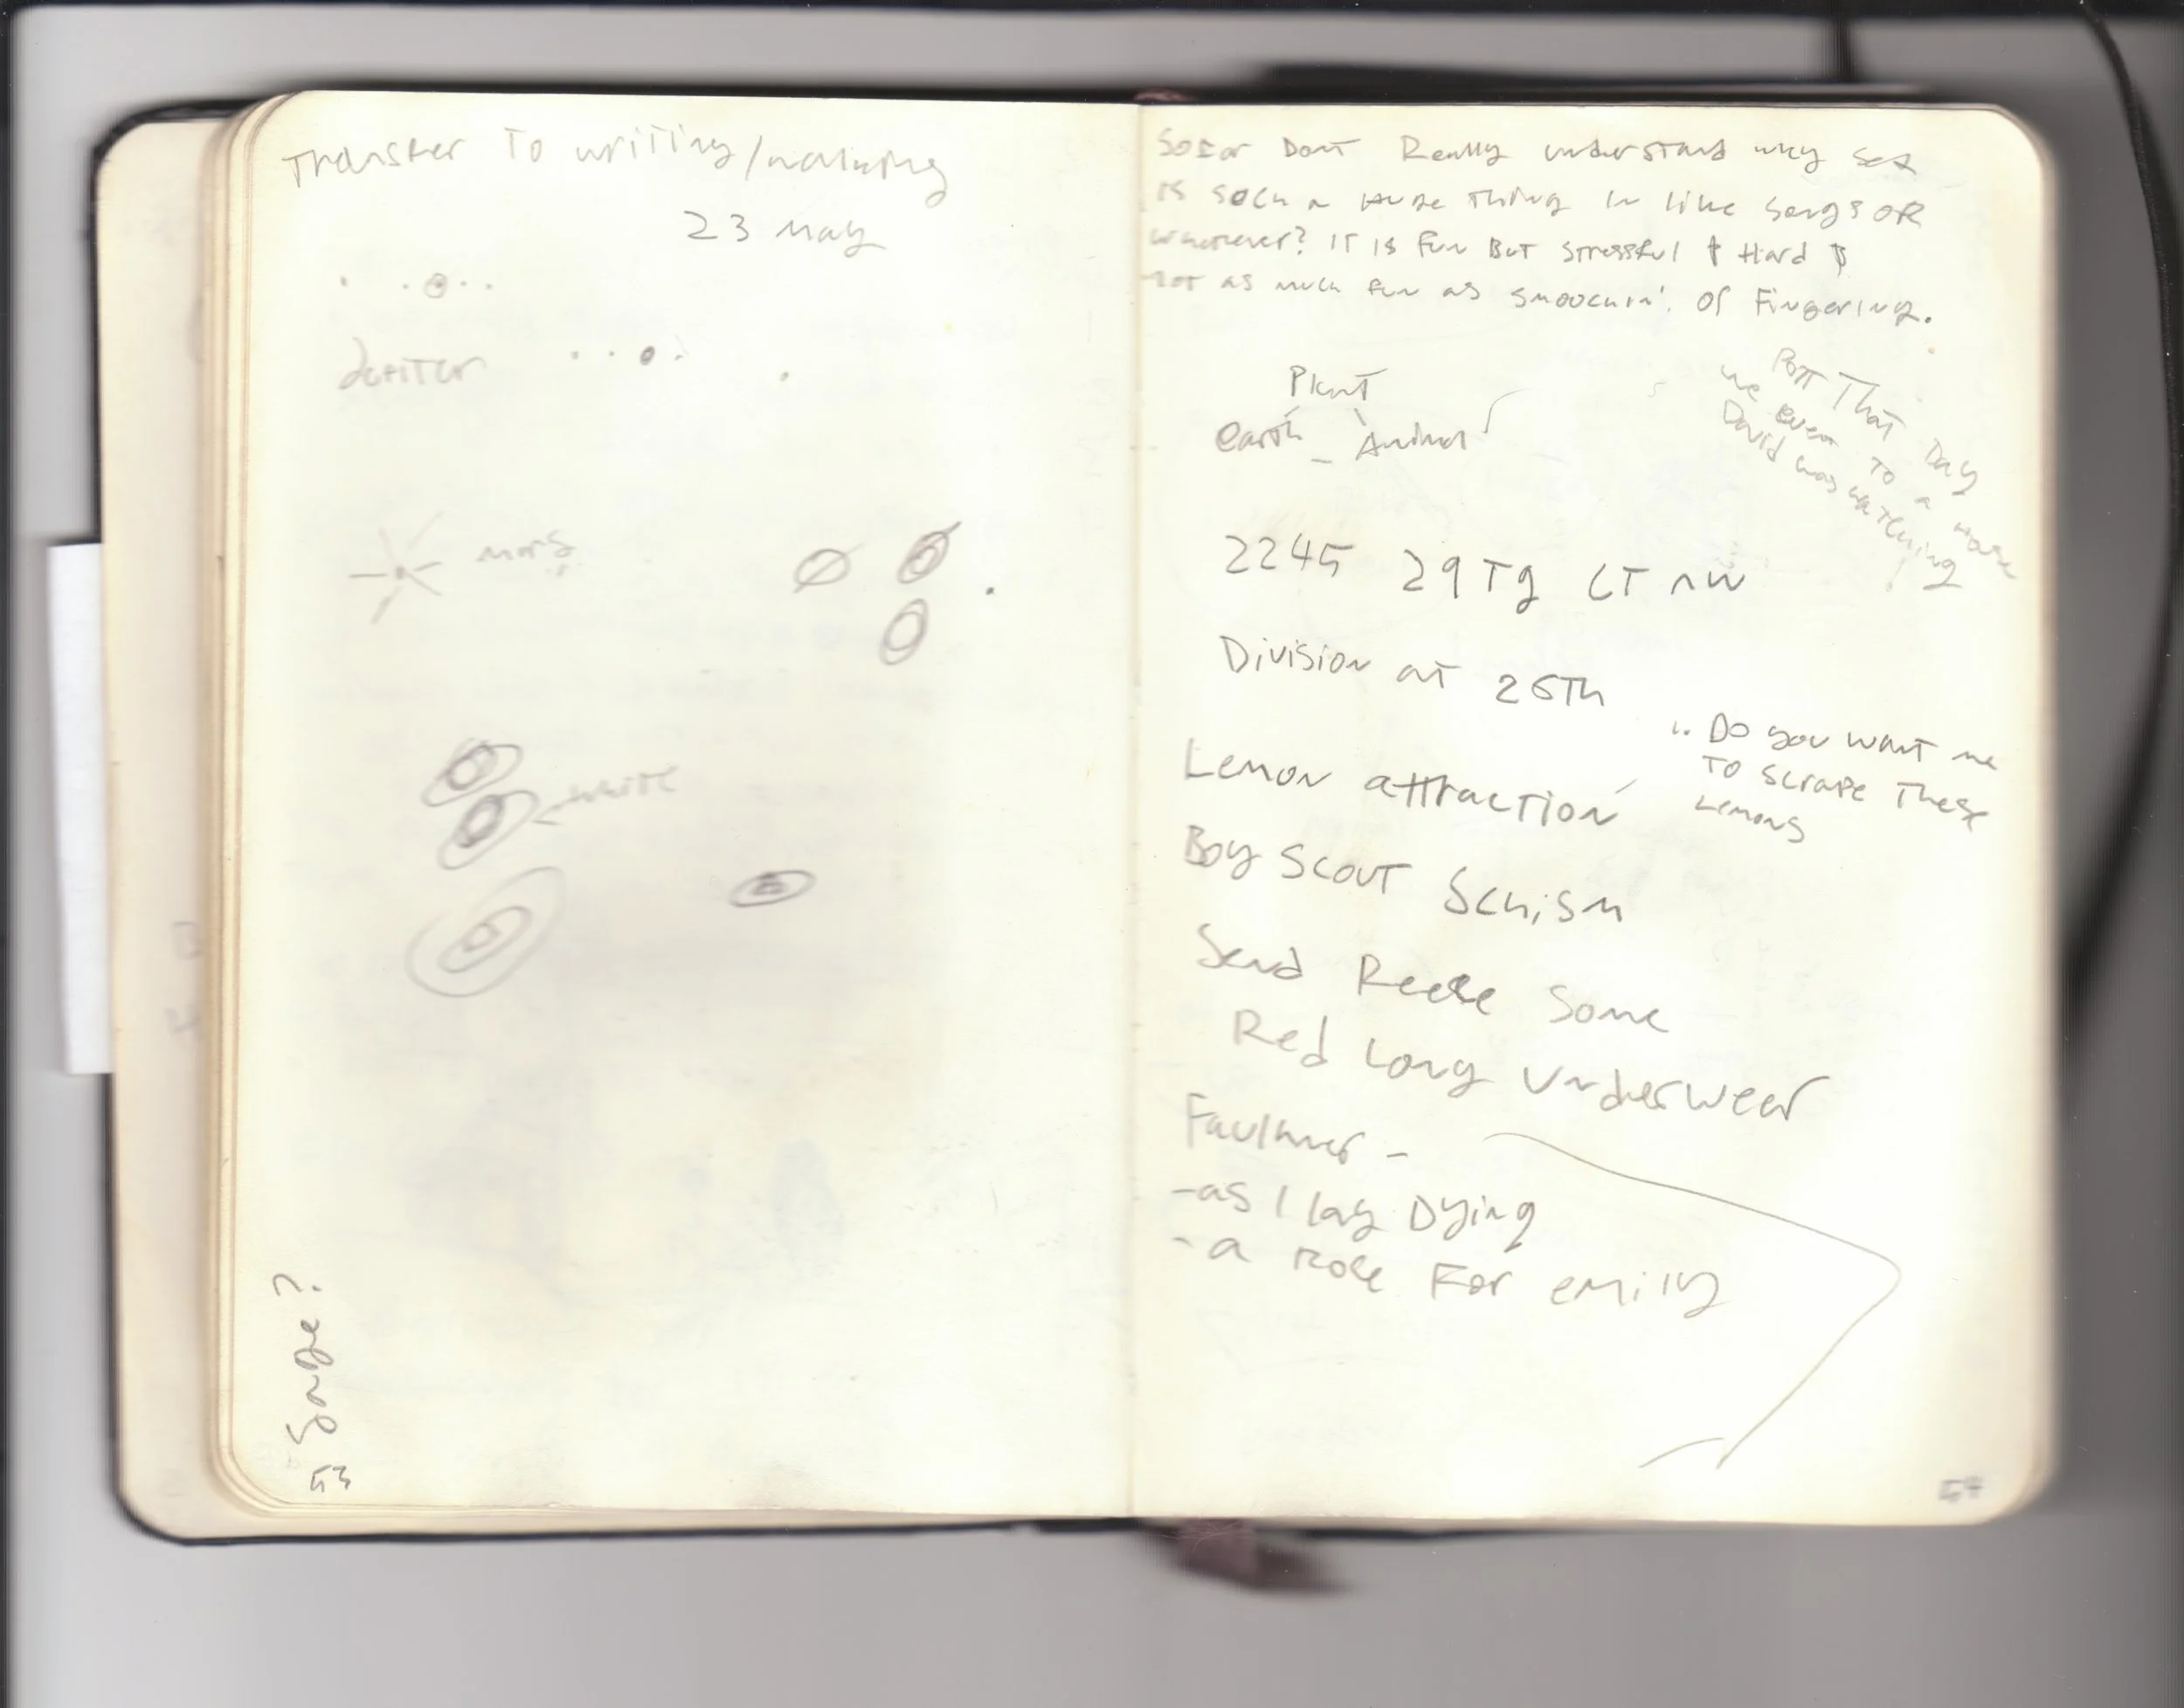 Transfer To writing/walking
23 may
Jupiter
mars
white
Songe?
53
So far Dont Really understand why sex
is such a huge Thing in like songs OR
whatever? IT IS Fun But stressful & Hard &
not as much fun as smoochin'. Or Fingering.
Plant
earth - Animal
Part That Day
we even To a
David was watching
2245 29Tg CT NW
Division at 25Th
Lemon attraction
"Do you want me
To scrape These
Lemons
Boy Scout Schism
Send Reese Some
Red Long Underwear
Faulkner -
-as I lay Dying
-a Rose For emily
54